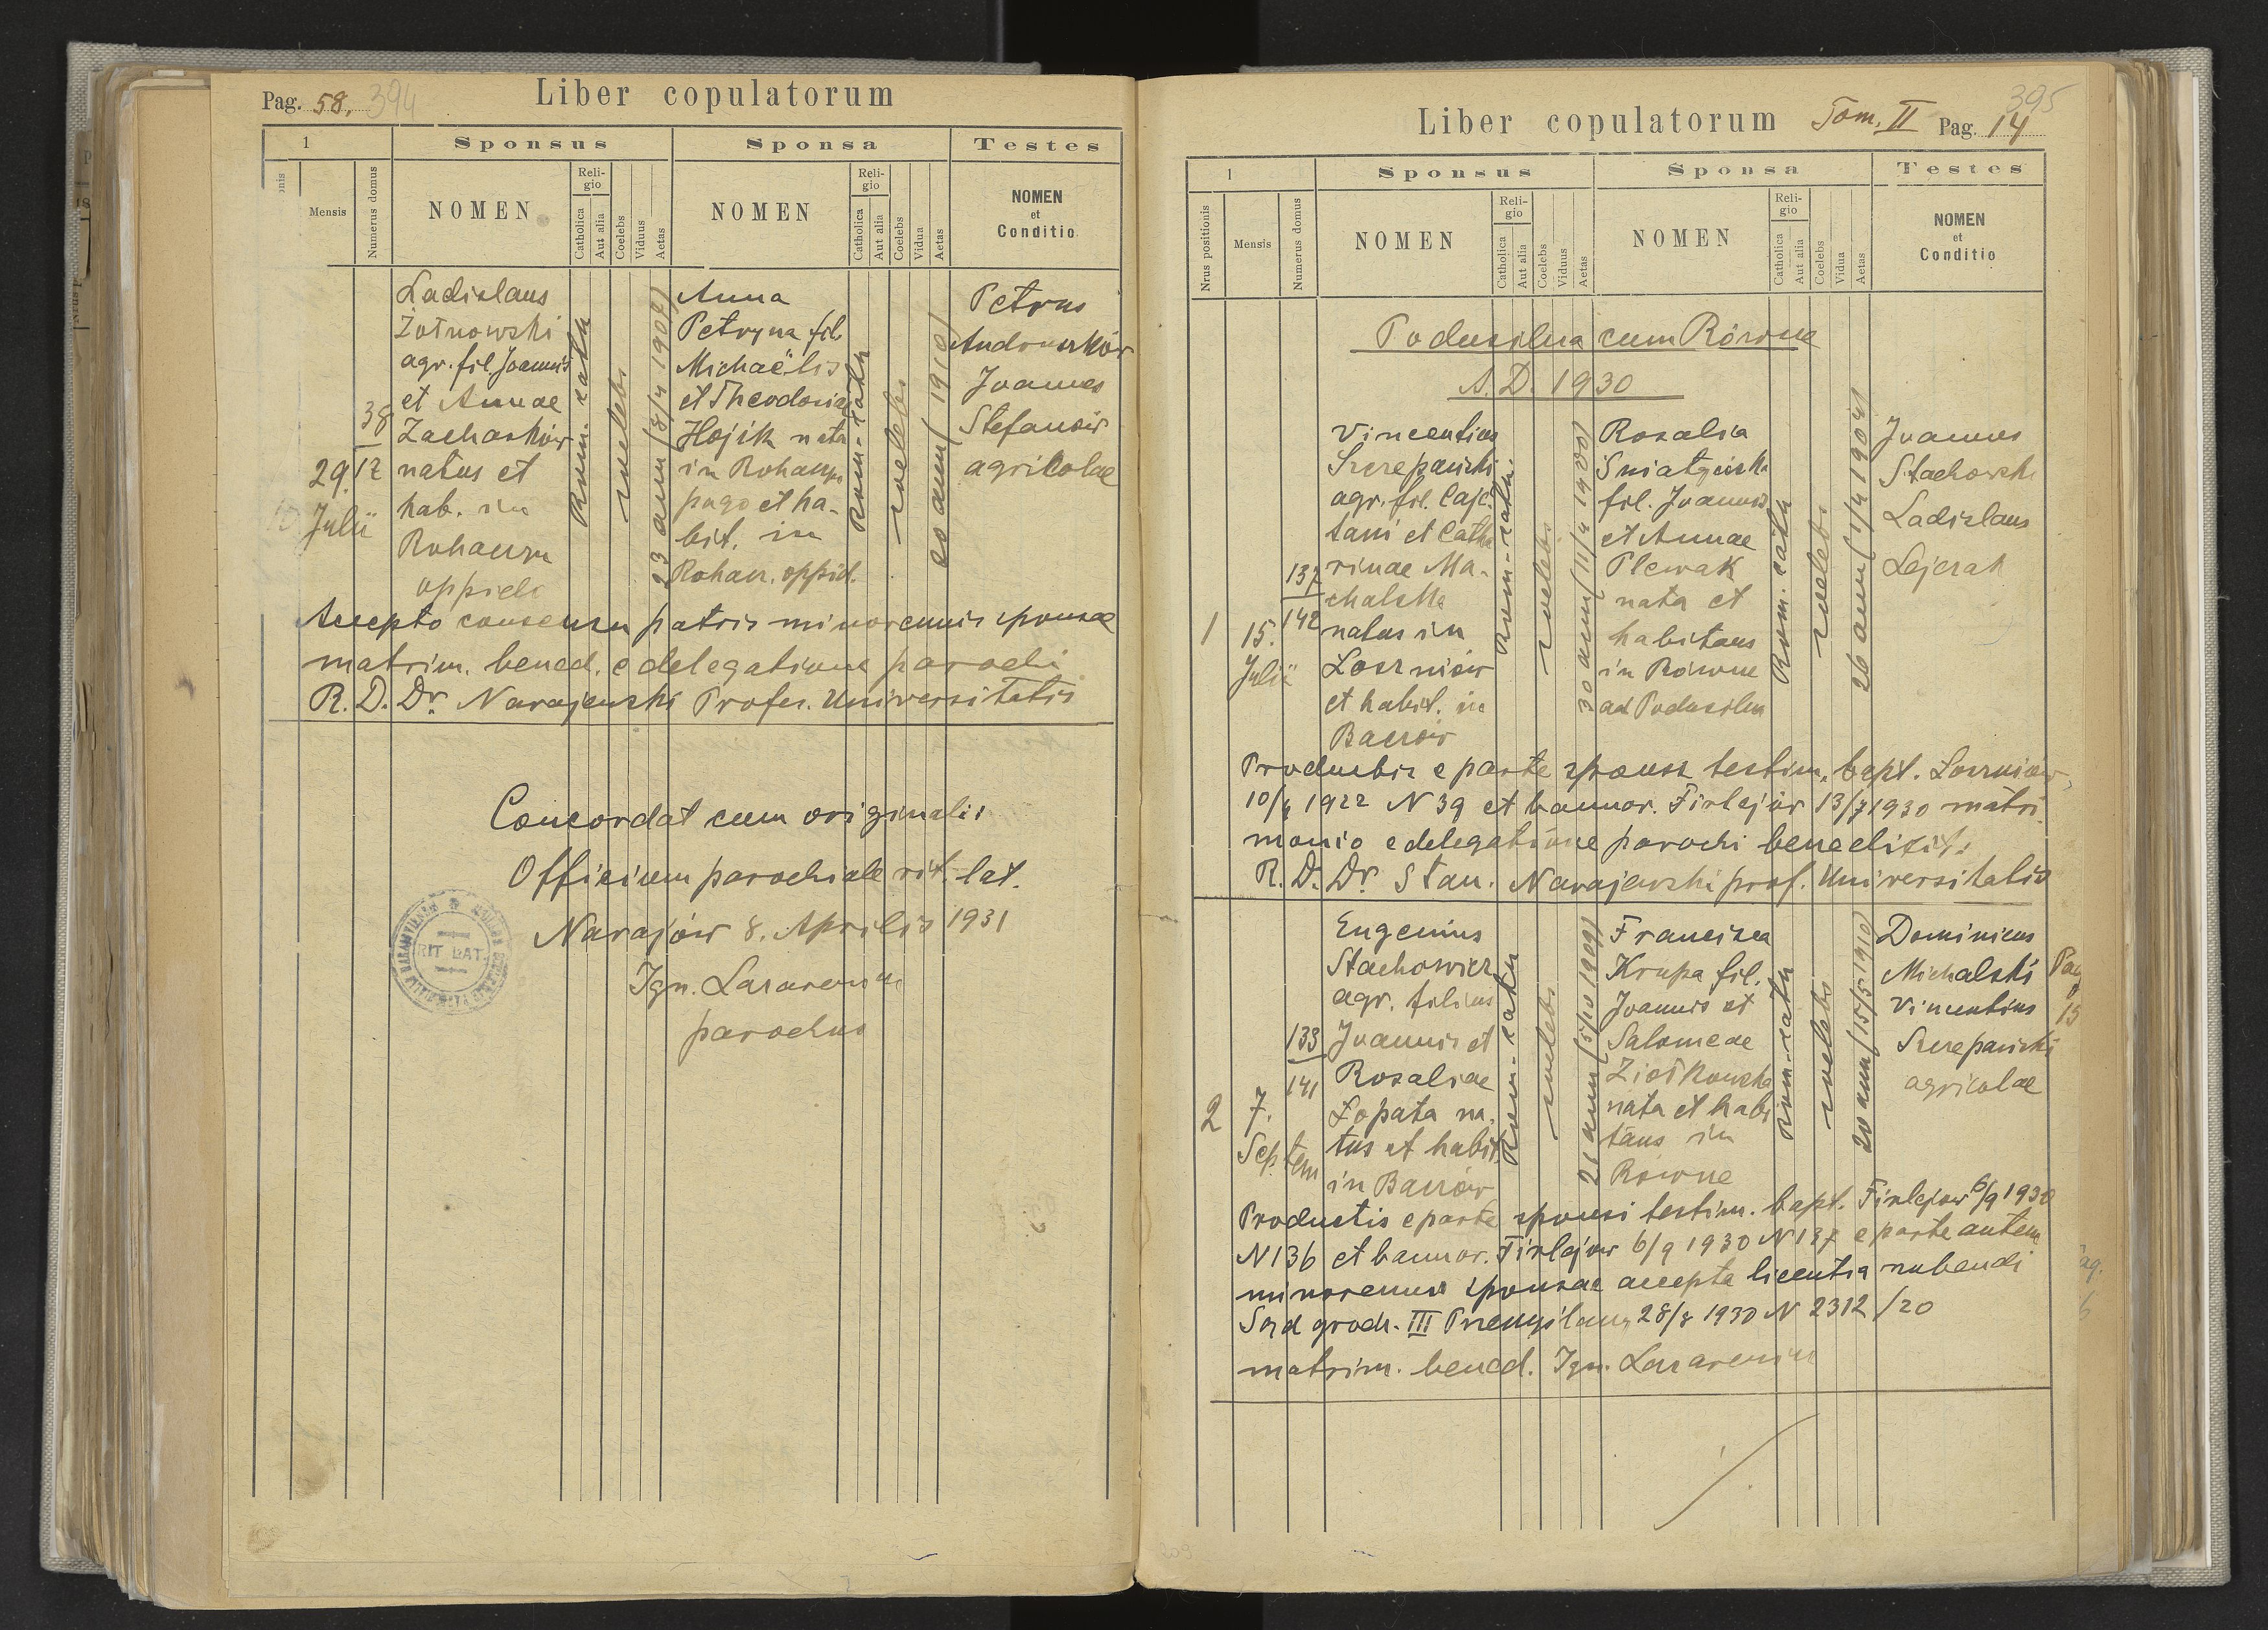 Pag. 58. 394
Liber copulatorum
1
Sponsus
Sponsa
Testes
Mensis
Numerus domus
NOMEN
Religio
Catholica
Aut alia
Coelebs
Viduus
Aetas
NOMEN
Religio
Catholica
Aut alia
Coelebs
Vidua
Aetas
NOMEN
et
Conditio
29.
Julii
38
17
Ladislaus
Żołnowski
agr. fil. Joannis
et Annae
Zacharków
natus et
hab. in
Rohaczyn
oppido
Rom. cath
coelebs
23 ann (8/4 1907)
Anna
Petryna fil.
Michaëlis
et Theodosiae
Hojik nata
in Rohaczyn
pago et ha-
bit. in
Rohacz. oppid.
Rom-cath
coelebs
20 ann ( 1910)
Petrus
Joannes
Stefanów
agricolae
Accepto consensu patris minorennis sponsae
matrim. bened. e delegatione parochi
R. D. Dr. Narajewski Profes. Universitatis
Concordat cum originali:
Officium parochiale rit. lat.
Narajów 8. Aprilis 1931
RIT LAT.
Ign. Lazarewicz
parochus
395
Liber copulatorum Tom. II Pag. 14
1
Sponsus
Sponsa
Testes
Nrus positionis
Mensis
Numerus domus
NOMEN
Religio
Catholica
Aut alia
Coelebs
Viduus
Aetas
NOMEN
Religio
Catholica
Aut alia
Coelebs
Vidua
Aetas
NOMEN
et
Conditio
Podusilna cum Równe
A. D. 1930
1
15.
Julii
137
142
Vincentius
Szczepański
agr. fil. Caje-
tani et Catha
rinae Ma-
chalska
natus in
Łoszniów
et habit. in
Baczów
Rom-cath.
coelebs
30 ann (11/4 1900)
Rosalia
Sniatyńska
fil. Joannis
et Annae
Plewak
nata et
habitans
in Równe
ad Podusilna
Rom. cath
coelebs
26 ann (1/4 1904)
Joannes
Stachowski
Ladislaus
Lejczak
Productis e parte sponsi testim. bapt. Łoszniów
10/4 1922 N 39 et bannor. Firlejów 13/7 1930 matri
monio e delegatione parochi benedixit:
R. D. Dr Stan. Narajewski prof. Universitatis
2
7.
Septem
133
141
Eugenius
Stachowicz
agr. filius
Joannis et
Rosaliae
Łopata na.
tus et habit.
in Baczów
Rom-cath
coelebs
21 ann (5/10 1909)
Francisca
Krupa fil.
Joannis et
Salomeae
Ziółkowska
nata et habi
tans in
Równe
Rom-cath
coelebs
20 ann (15/5 1910)
Dominicus
Michalski
Vincentius
Szczepański
agricolae
Pag
15
Productis e parte sponsi testim. bapt. Firlejów 6/9 1930
N 136 et bannor. Firlejów 6/9 1930 N 137 e parte autem
minorennis sponsae accepta licentia nubendi
Sąd grodz. III Przemyślany 28/8 1930 N 2312/20
matrim. bened. Ign. Lazarewicz